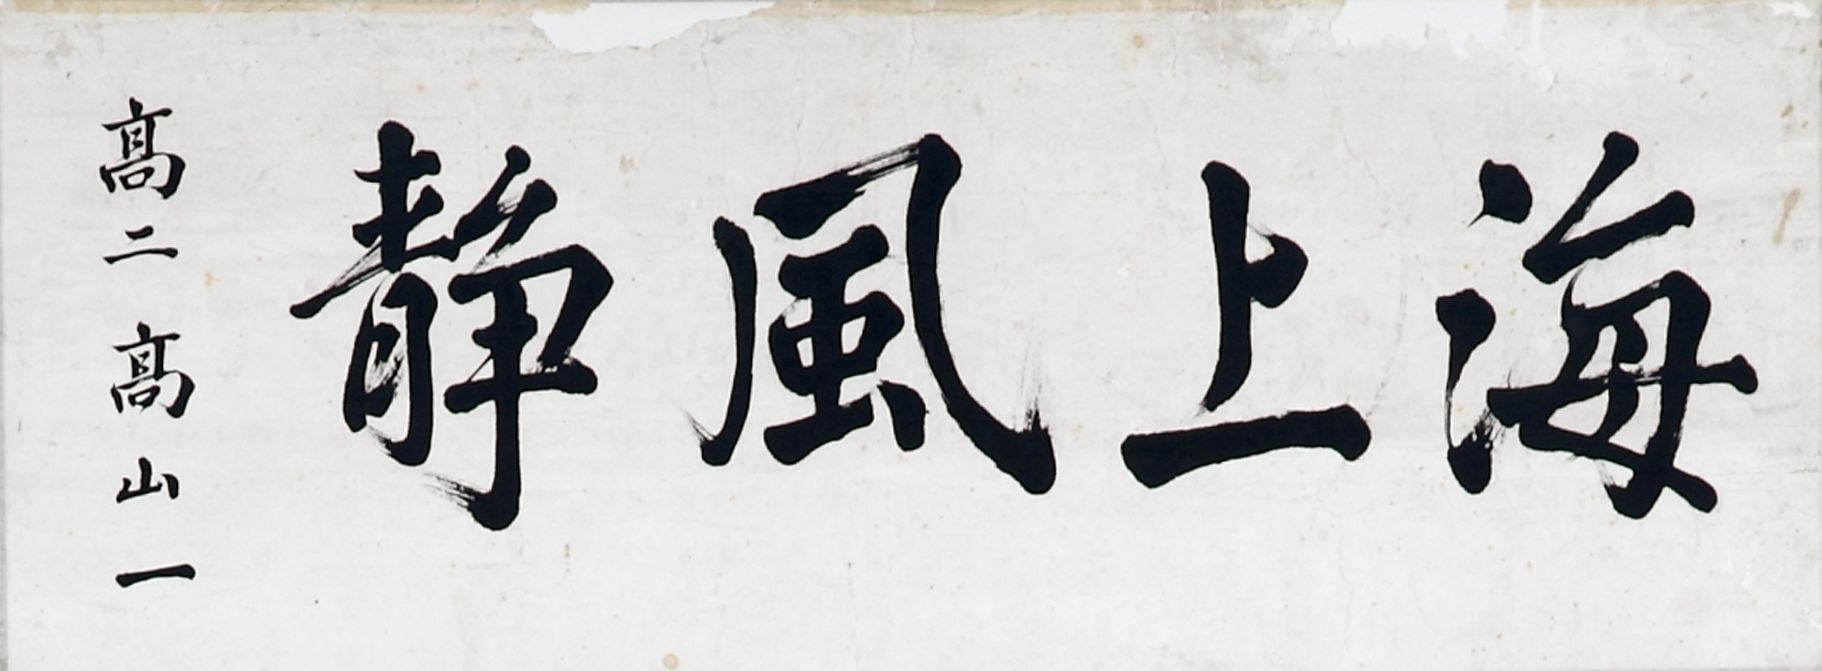 海上風静
髙二髙山一